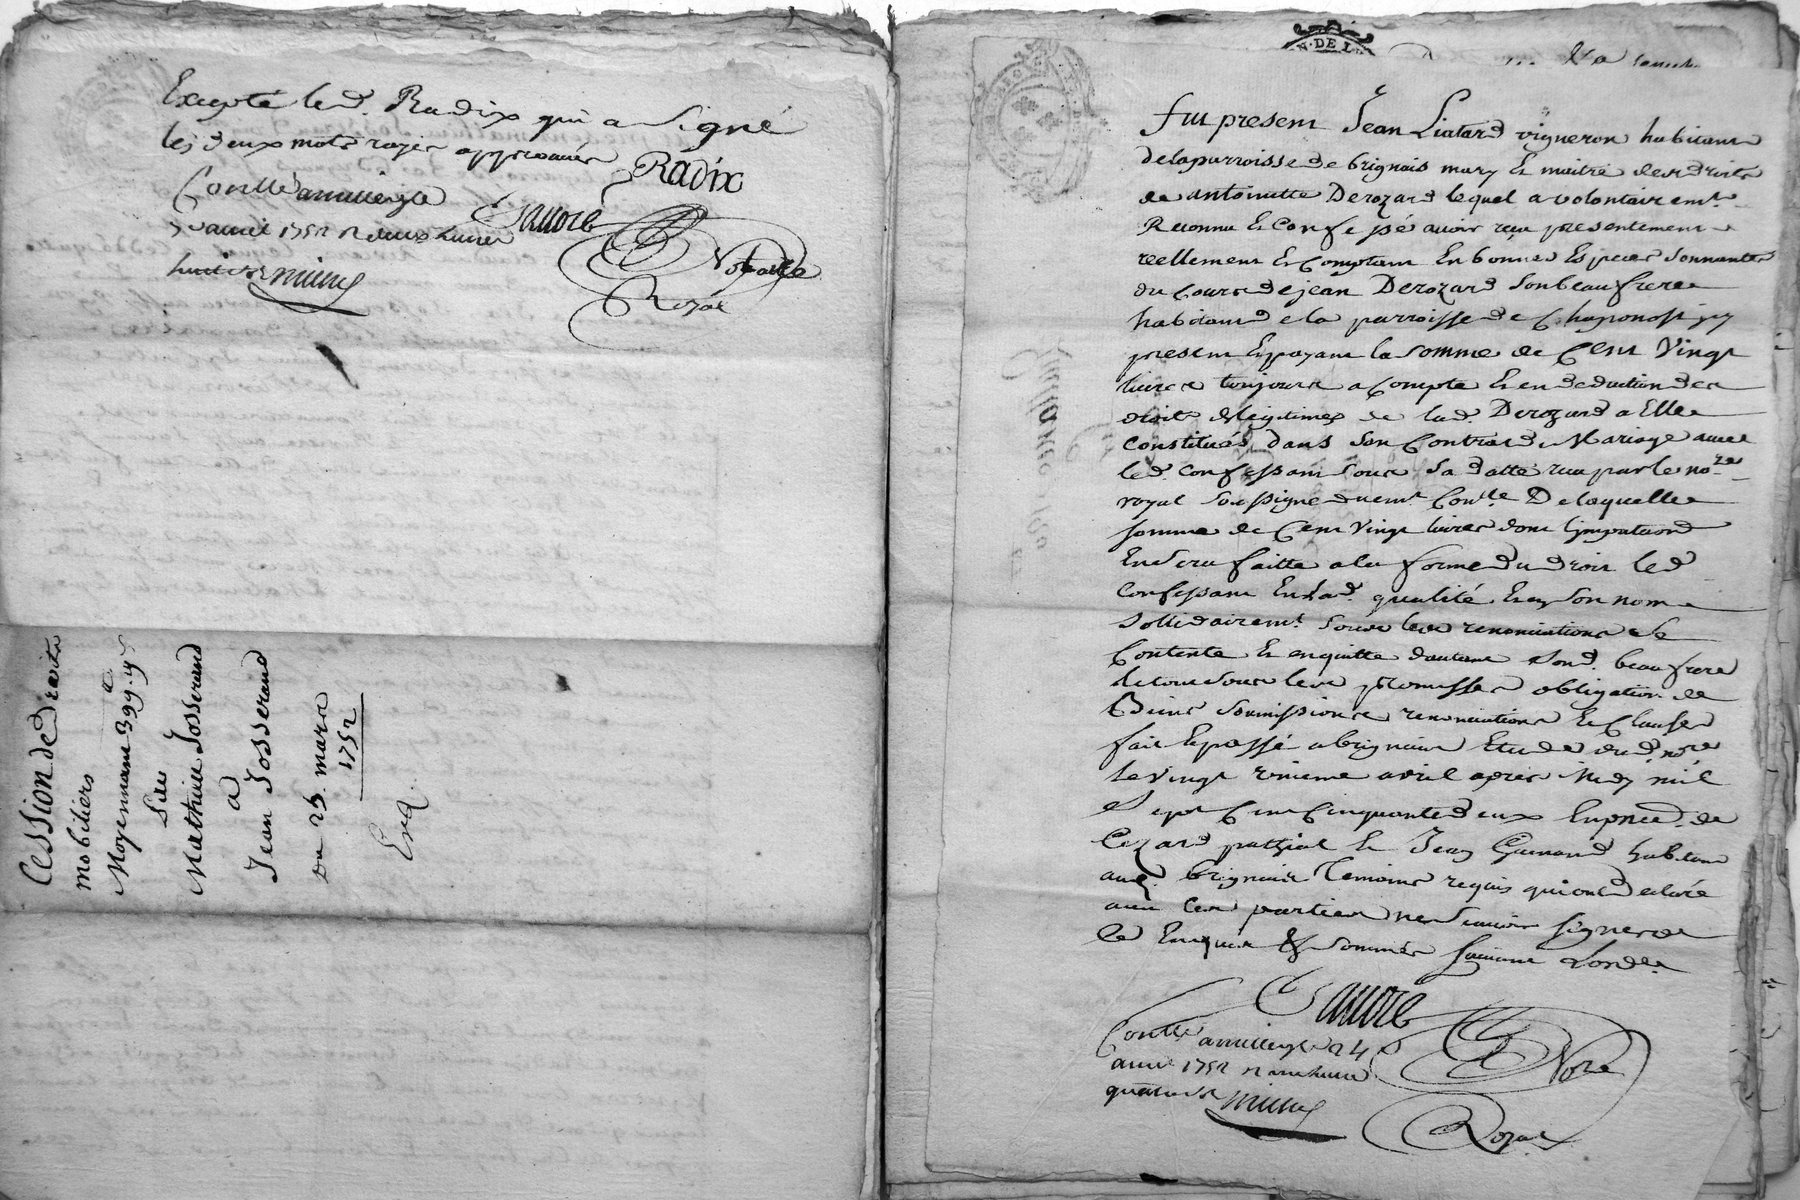 Excepté led. Radix qui a Signé
les deux mots rayés approuvés
Radix
Conllé a millery le
avril 1752 R deux livres
huit sols
Notaire
Royal
Cession de droits
mobiliers
Moyennant 399.
par
Mathieu Josserand
a
Jean Josserand
Du 25. mars
1752
Exp.
N·DE L
Fut present Jean Liatard vigneron habitant
de la parroisse de brignais mary Et maitre des droits
de antoinette Derozard lequel a volontairemt.
Reconnu Et Confessé avoir reçu presentement
reellement Et Comptant En bonnes Especes Sonnantes
du Cours de jean Derozard Son beau frere
habitant de la parroisse de Chaponost icy
present Et payant la Somme de Cent Vingt
livres toujours a Compte Et en deduction des
droits légitimes de lad. Derozard a Elle
Constitués dans Son Contrat de Mariage avec
led. Confessant Sous Sa datte reçu par le nore
royal Soussigné duemt Conllé De laquelle
Somme de Cent Vingt livres dont l'imputation
En Sera faitte a la forme du droit led
Confessant En lad. qualité Et en Son nom
Sollidairemt. Sous les renonciations de
Contente Et en quitte d'autant Sond. beau frere
le tout Sous les promesses obligation de
Biens Soumissions renonciations Et Clauses
fait Et passé a brignais Etude dud. nore
le vingt avril après Midy mil
Sept Cent Cinquante deux En pnce. de
Cezard Et Jean habitant
aud. brignais Temoins requis qui ont declaré
avec les parties ne Scavoir Signer de
ce Enquis & Sommés Suivant l'ordce.
Conllé a millery le 24
avril 1752 R livre
quatre s
Nore
Royal